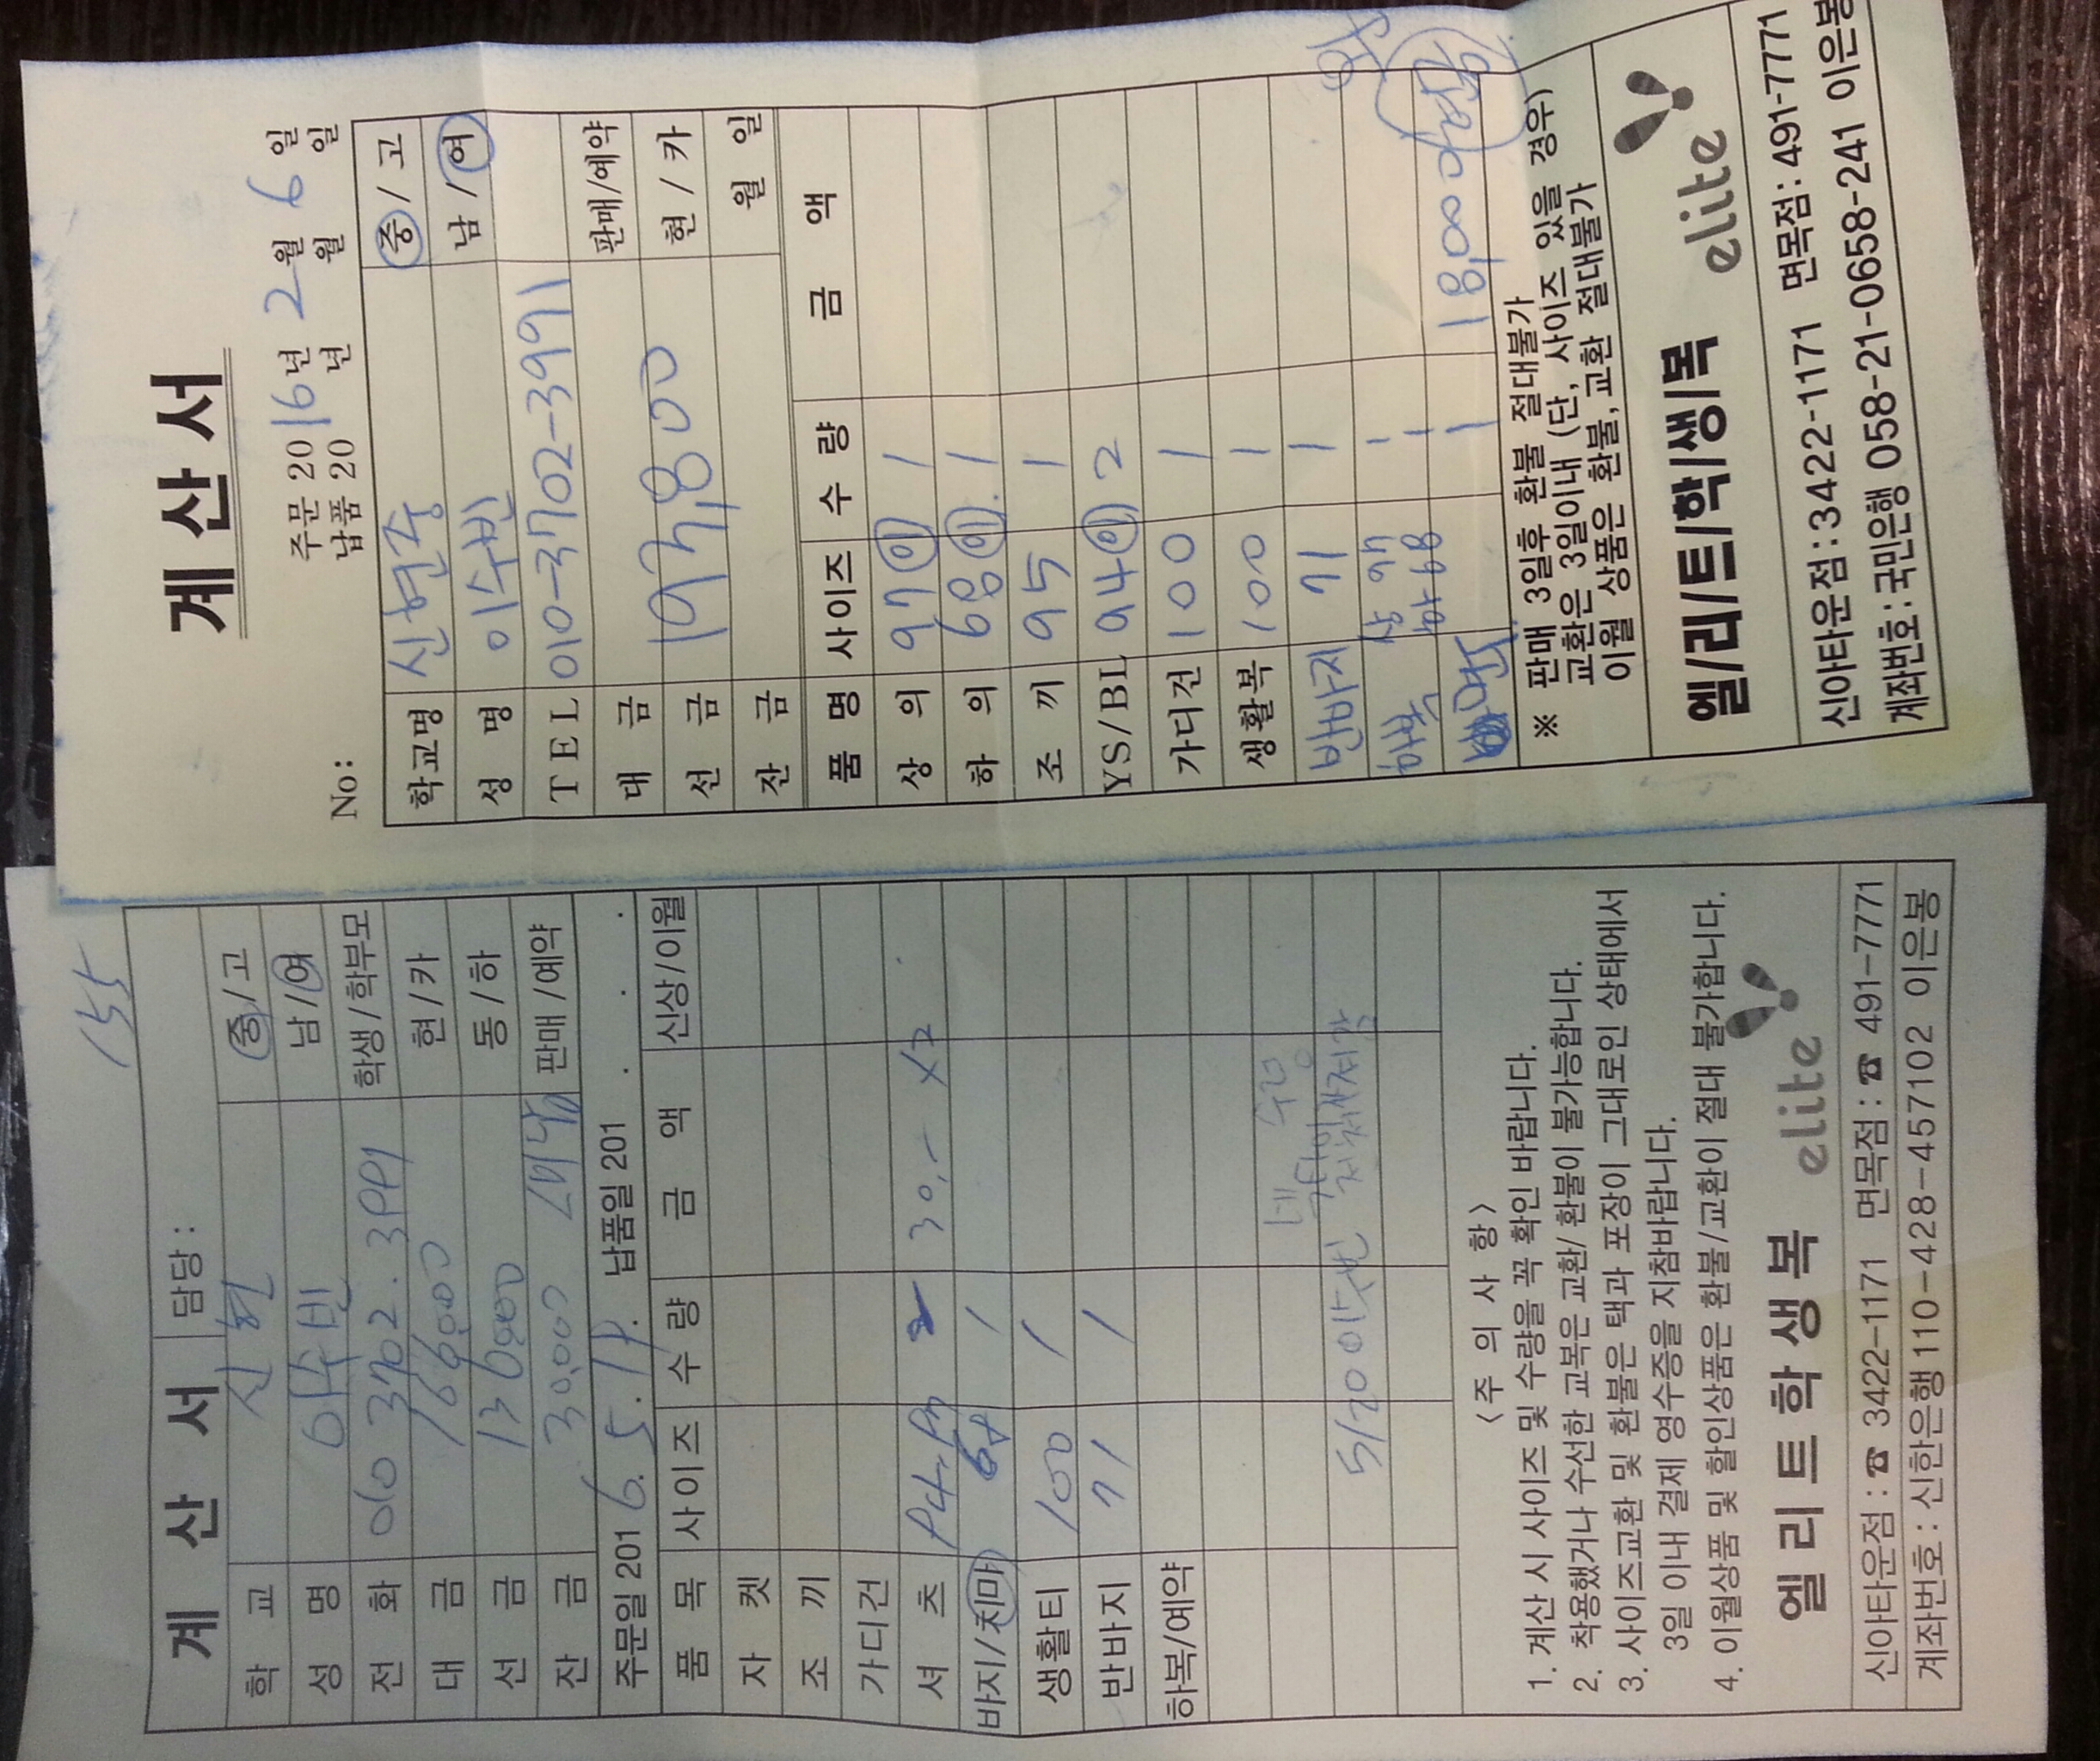 계 산 서
No:
주문 2016년 2월 6일
납품 20 년 월 일
학교명 신현중 중 / 고
성 명 이수빈 남 / 여
TEL 010-3702-3991
대 금 판매/예약
선 금 197,800 현 / 카
잔 금 월 일
품 명 사이즈 수 량 금 액
상 의 97 이 1
하 의 68 이 1
조 끼 95 1
YS/BL 94 이 2
가디건 100 1
생활복 100 1
반바지 71 1
하복 상 97 1
하 68 1
1 18,000
※ 판매 3일후 환불 절대불가
교환은 3일이내 (단, 사이즈 있을 경우)
이월 상품은 환불,교환 절대불가
엘/리/트/학/생/복 elite
신아타운점:3422-1171 면목점: 491-7771
계좌번호:국민은행 058-21-0658-241 이은봉
155
계 산 서 담당 :
학 교 신현 중/고
성 명 이수빈 남/여
전 화 010 3702. 3991 학생/학부모
대 금 166,000 현/카
선 금 136,000 동/하
잔 금 30,000 판매/예약
주문일 2016. 5. 19. 납품일 201 . . .
품 목 사이즈 수 량 금 액 신상/이월
자 켓
조 끼
가디건
셔 츠 94. 97 2 30,- x2
바지/치마 68 1
생활티 100 1
반바지 71 1
하복/예약
5/20 이수빈
〈주 의 사 항〉
1. 계산 시 사이즈 및 수량을 꼭 확인 바랍니다.
2. 착용했거나 수선한 교복은 교환/ 환불이 불가능합니다.
3. 사이즈교환 및 환불은 택과 포장이 그대로인 상태에서
3일 이내 결제 영수증을 지참바랍니다.
4. 이월상품 및 할인상품은 환불/교환이 절대 불가합니다.
엘 리 트 학 생 복 elite
신아타운점 : ☎ 3422-1171 면목점 : ☎ 491-7771
계좌번호 : 신한은행110-428-457102 이은봉